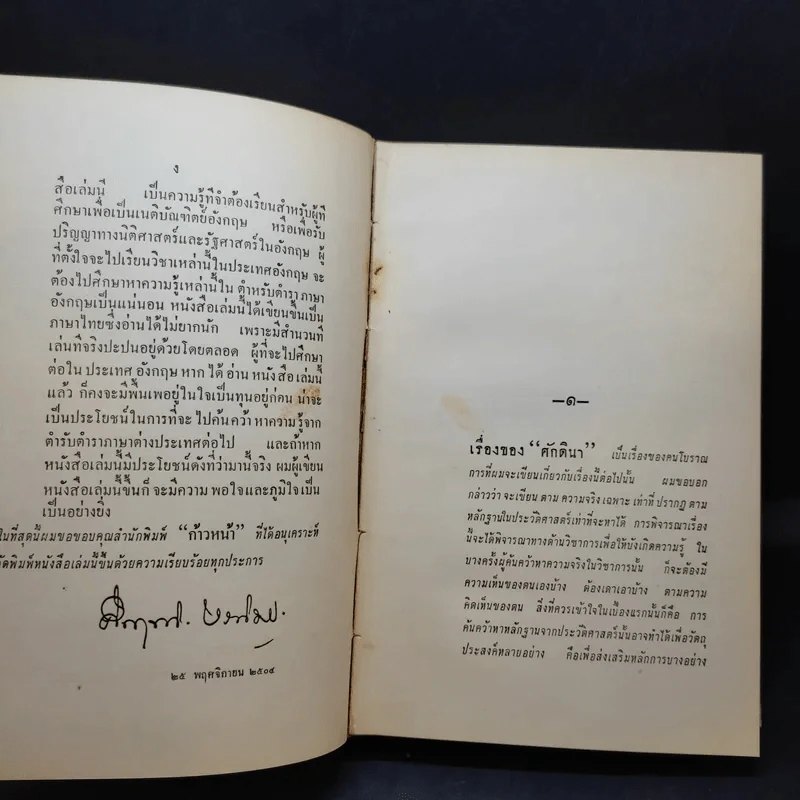 ง
สือเล่มนี้ เป็นความรู้ที่จำต้องเรียนสำหรับผู้ที่
ศึกษาเพื่อเป็นเนติบัณฑิตย์อังกฤษ หรือเพื่อรับ
ปริญญาทางนิติศาสตร์และรัฐศาสตร์ในอังกฤษ ผู้
ที่ตั้งใจจะไปเรียนวิชาเหล่านี้ในประเทศอังกฤษ จะ
ต้องไปศึกษาหาความรู้เหล่านี้ใน ตำหรับตำรา ภาษา
อังกฤษเป็นแน่นอน หนังสือเล่มนี้ได้เขียนขึ้นเป็น
ภาษาไทยซึ่งอ่านได้ไม่ยากนัก เพราะมีสำนวนที
เล่นทีจริงปะปนอยู่ด้วยโดยตลอด ผู้ที่จะไปศึกษา
ต่อใน ประเทศ อังกฤษ หาก ได้ อ่าน หนังสือ เล่มนี้
แล้ว ก็คงจะมีพื้นเพอยู่ในใจเป็นทุนอยู่ก่อน น่าจะ
เป็นประโยชน์ในการที่จะ ไปค้นคว้า หาความรู้จาก
ตำรับตำราภาษาต่างประเทศต่อไป และถ้าหาก
หนังสือเล่มนี้มีประโยชน์ดังที่ว่ามานี้จริง ผมผู้เขียน
หนังสือเล่มนี้ขึ้นก็ จะมีความ พอใจและภูมิใจเป็น
เป็นอย่างยิ่ง
ในที่สุดนี้ผมขอขอบคุณสำนักพิมพ์ “ก้าวหน้า” ที่ได้อนุเคราะห์
จัดพิมพ์หนังสือเล่มนี้ขึ้นด้วยความเรียบร้อยทุกประการ
๒๕ พฤศจิกายน ๒๕๐๔
—๑—
เรื่องของ “ศักดินา” เป็นเรื่องของคนโบราณ
การที่ผมจะเขียนเกี่ยวกับเรื่องนี้ต่อไปนั้น ผมขอบอก
กล่าวว่า จะเขียน ตาม ความจริง เฉพาะ เท่าที่ ปรากฏ ตาม
หลักฐานในประวัติศาสตร์เท่าที่จะหาได้ การพิจารณาเรื่อง
นี้จะได้พิจารณาทางด้านวิชาการเพื่อให้บังเกิดความรู้ ใน
บางครั้งผู้ค้นคว้าหาความจริงในวิชาการนั้น ก็จะต้องมี
ความเห็นของตนเองบ้าง ต้องเดาเอาบ้าง ตามความ
คิดเห็นของตน สิ่งที่ควรเข้าใจในเบื้องแรกนั้นก็คือ การ
ค้นคว้าหาหลักฐานจากประวัติศาสตร์นั้นอาจทำได้เพื่อวัตถุ
ประสงค์หลายอย่าง คือเพื่อส่งเสริมหลักการบางอย่าง